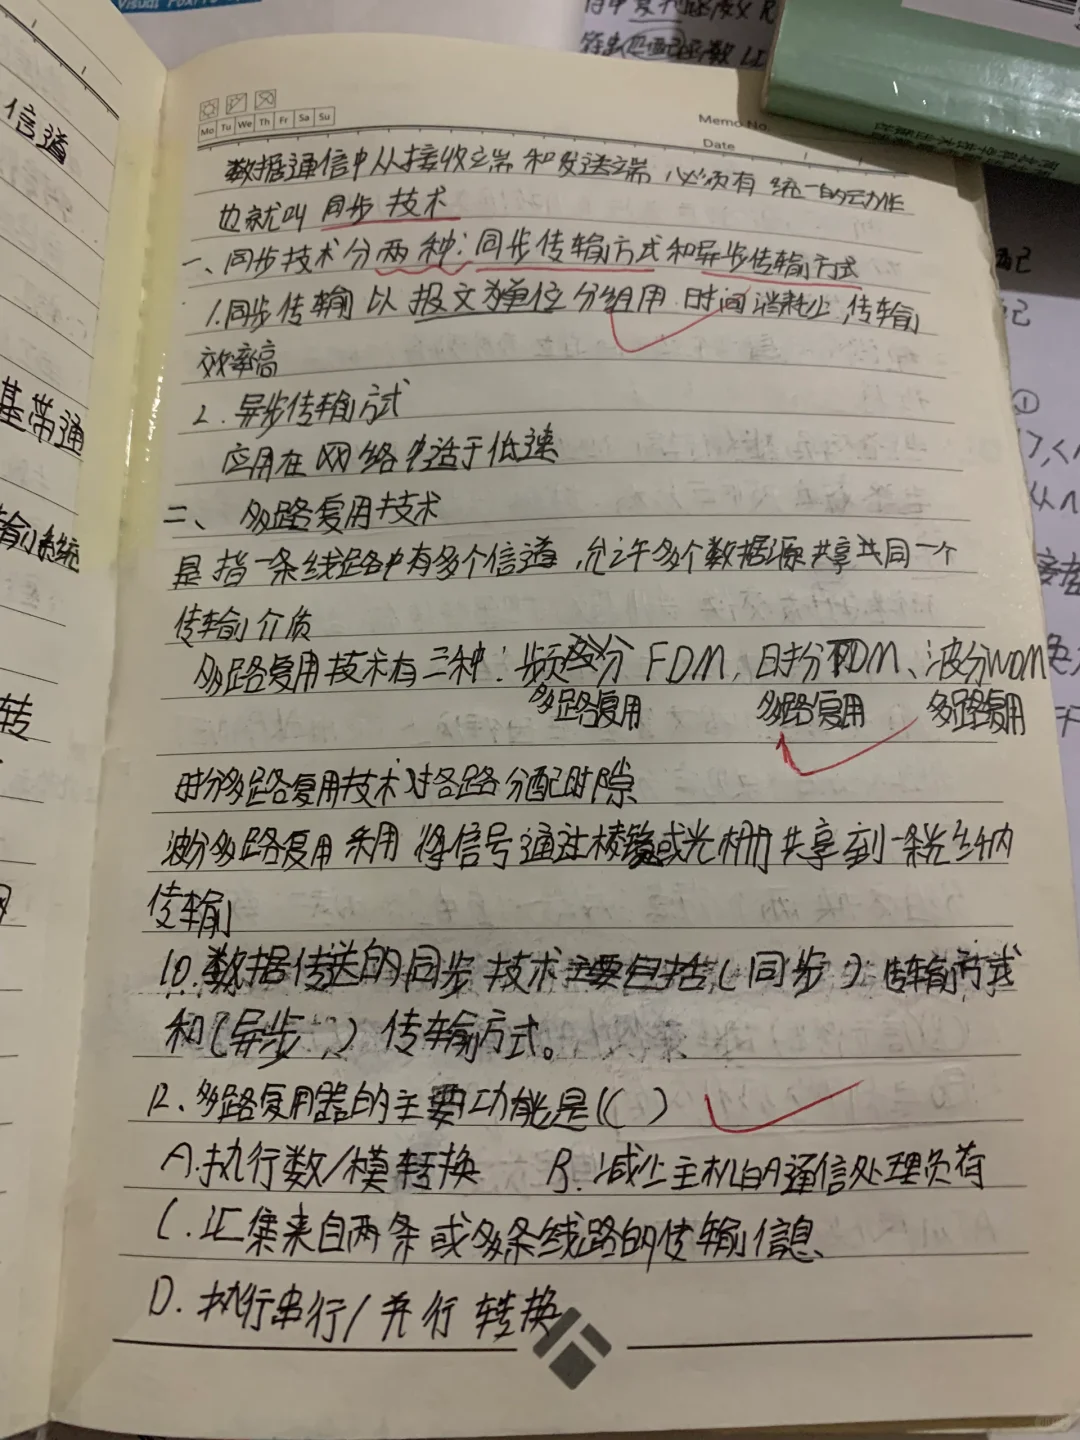 Visual FoxPro
信道
基带通
输系统
转
Mo Tu We Th Fr Sa Su
Memo No.
Date
数据通信中从接收端和发送端,必须有统一的动作
也就叫同步技术
一、同步技术分两种:同步传输方式和异步传输方式
1.同步传输以报文为单位分组用时间消耗少,传输
效率高
2.异步传输方式
应用在网络中适于低速
二、多路复用技术
是指一条线路中有多个信道,允许多个数据源共享共同一个
传输介质
多路复用技术有三种:频分FDM,时分TDM、波分WDM
多路复用 多路复用 多路复用
时分多路复用技术对各路分配时隙
波分多路复用采用将信号通过棱镜或光栅共享到一条光纤内
传输
10.数据传送的同步技术主要包括(同步)传输方式
和(异步)传输方式。
12、多路复用器的主要功能是(C)
A.执行数/模转换 B.减少主机的通信处理负荷
C.汇集来自两条或多条线路的传输信息、
D.执行串行/并行转换